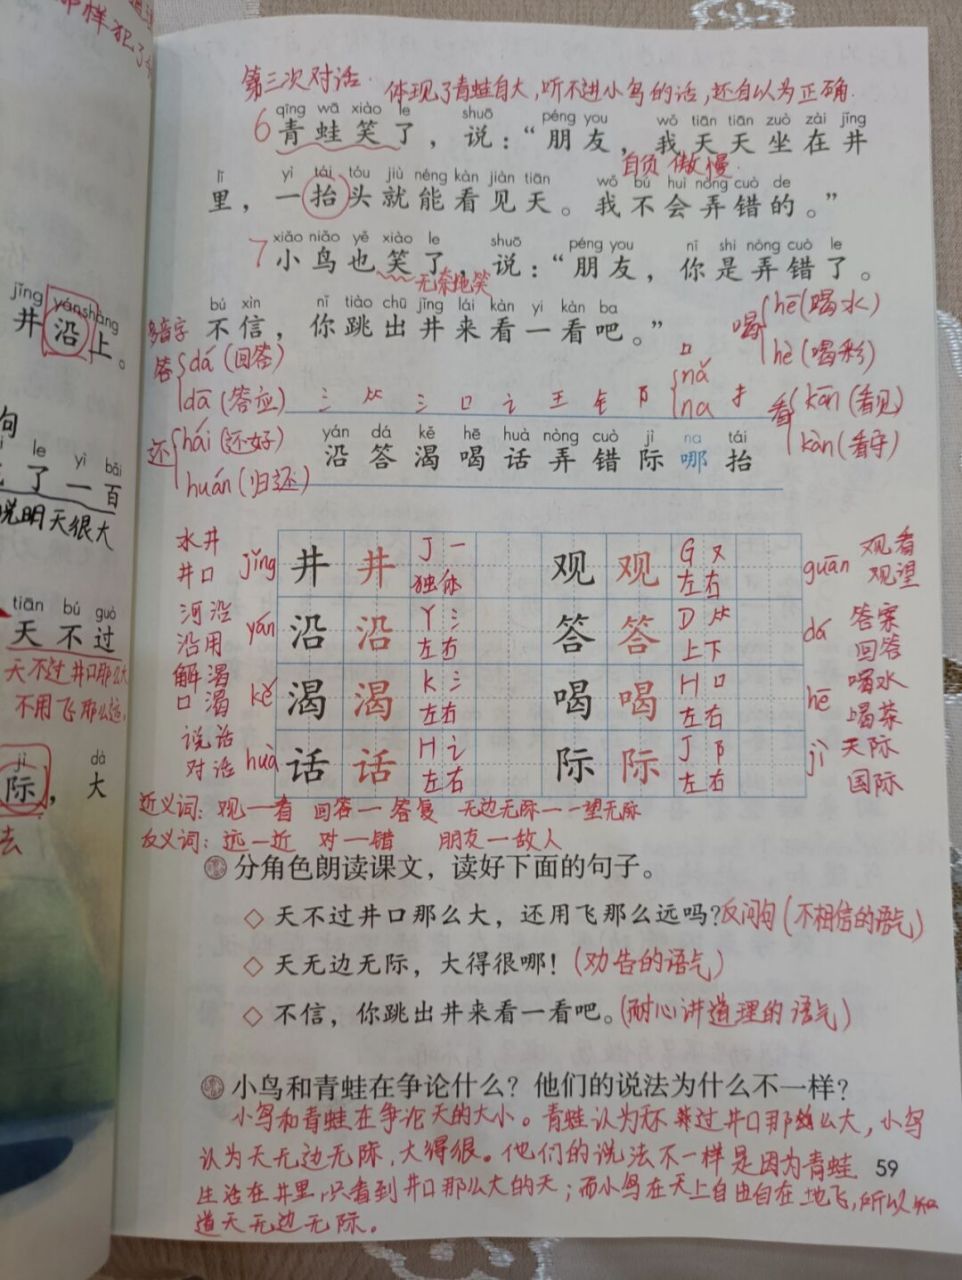 那样犯了
第三次对话
体现了青蛙自大，听不进小鸟的话，还自以为正确.
qīng wā xiào le shuō péng you wǒ tiān tiān zuò zài jǐng
6 青蛙笑了，说：“朋友，我天天坐在井
自负 傲慢
lǐ yì tái tóu jiù néng kàn jiàn tiān wǒ bú huì nòng cuò de
里，一抬头就能看见天。我不会弄错的。”
xiǎo niǎo yě xiào le shuō péng you nǐ shì nòng cuò le
7 小鸟也笑了，说：“朋友，你是弄错了。
无奈地笑
bú xìn nǐ tiào chū jǐng lái kàn yi kàn ba
不信，你跳出井来看一看吧。”
多音字
答 dá（回答）
dā（答应）
还 hái（还好）
huán（归还）
喝 hē（喝水）
hè（喝彩）
看 kān（看见）
kàn（看守）
氵 ⺮ 氵 口 讠 王 钅 阝 口 nǎ na 扌
yán dá kě hē huà nòng cuò jì na tái
沿 答 渴 喝 话 弄 错 际 哪 抬
水井
井口
jǐng 井 井 J 一
独体
观 观 G 又
左右
guān 观看
观望
河沿
沿用
yán 沿 沿 Y 氵
左右
答 答 D ⺮
上下
dá 答案
回答
解渴
口渴
kě 渴 渴 K 氵
左右
喝 喝 H 口
左右
hē 喝水
喝茶
说话
对话
huà 话 话 H 讠
左右
际 际 J 阝
左右
jì 天际
国际
近义词：观—看 回答—答复 无边无际—一望无际
反义词：远—近 对—错 朋友—敌人
分角色朗读课文，读好下面的句子。
◇ 天不过井口那么大，还用飞那么远吗？反问句（不相信的语气）
◇ 天无边无际，大得很哪！（劝告的语气）
◇ 不信，你跳出井来看一看吧。（耐心讲道理的语气）
小鸟和青蛙在争论什么？他们的说法为什么不一样？
小鸟和青蛙在争论天的大小。青蛙认为天不过井口那么大，小鸟
认为天无边无际，大得很。他们的说法不一样是因为青蛙
生活在井里，只看到井口那么大的天；而小鸟在天上自由自在地飞，所以知
道天无边无际。
59
jǐng yán shàng
井沿上。
句
le yì bǎi
了一百
说明天很大
tiān bú guò
天不过
天不过井口那么大
不用飞那么远，
jì dà
际，大
法